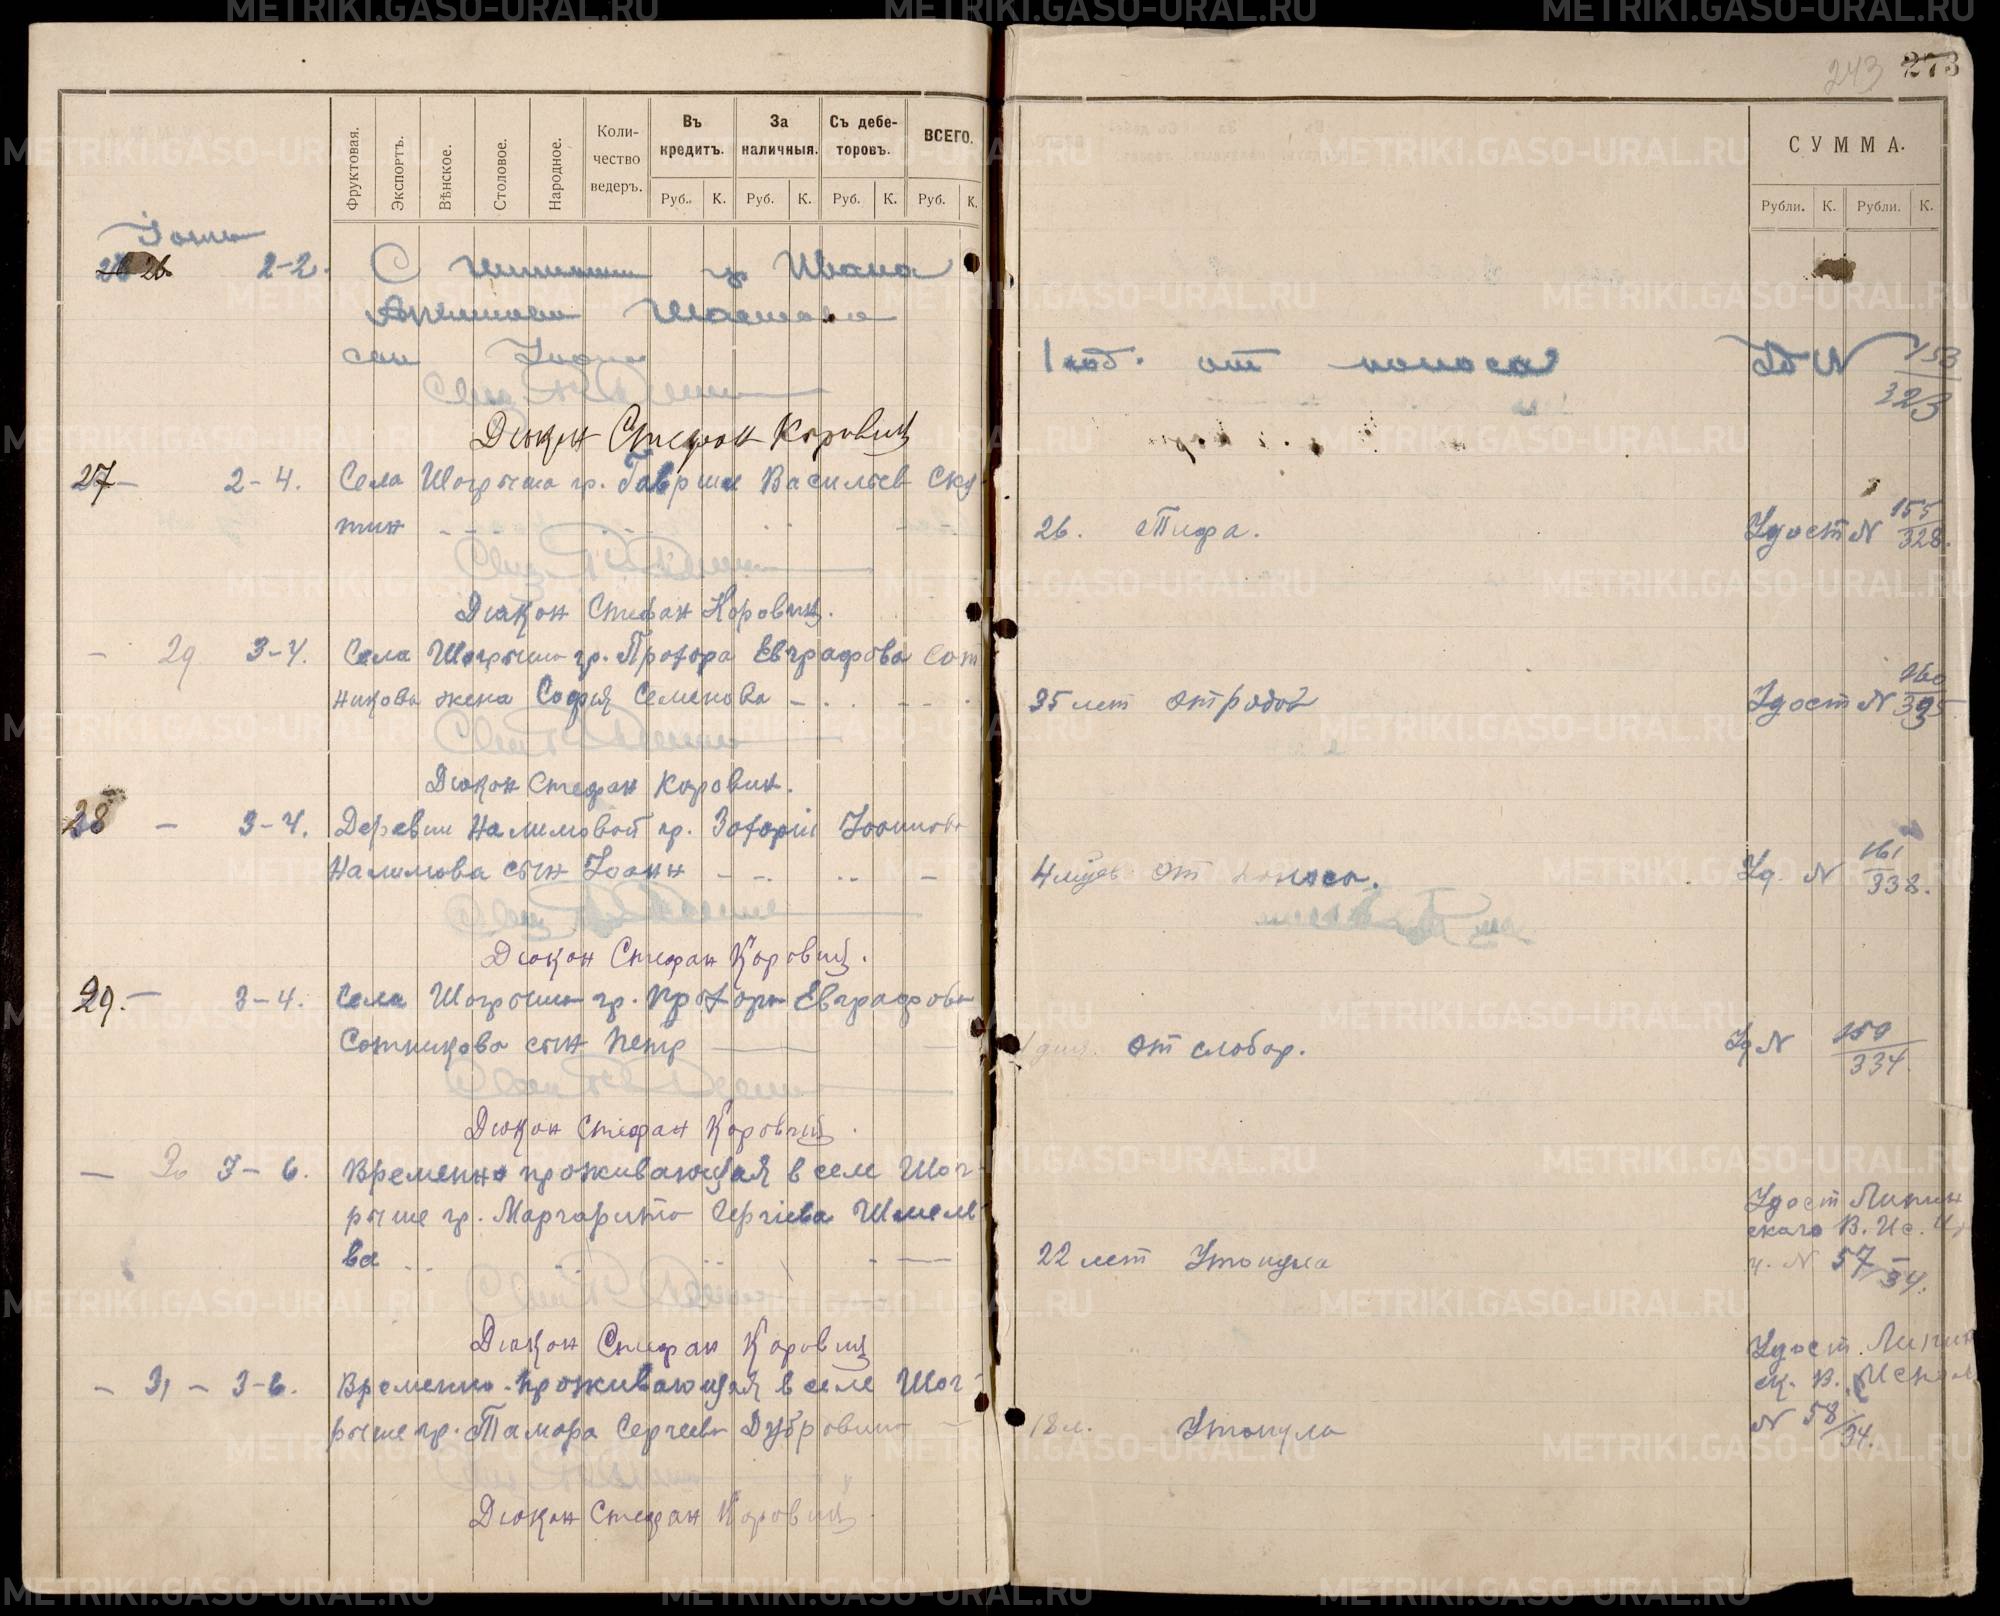 243 273
Фруктовая. Экспортъ. Вѣнское. Столовое. Народное. Коли-чество ведеръ. Въ кредитъ. За наличныя. Съ дебе-торовъ. ВСЕГО.
Руб. К. Руб. К. Руб. К. Руб. К.
СУММА.
Рубли. К. Рубли. К.
26 2-2. С гр Ивана
сын Иоанн
1 год. от поноса Уд N 153/323
Диакон Стефан Коровин
27 - 2-4. Села Шогрыша гр. Гавриил Васильев Ску-
тин
26. Тифа. Удост N 155/328.
Диакон Стефан Коровин.
- 29 3-4. Села Шогрыша гр. Прохора Евграфова Сот
никова жена София Семенова
35 лет от родов Удост N 160/335
Диакон Стефан Коровин.
28 - 3-4. Деревни Налимовой гр. Захарии Иоаннова
Налимова сын Иоанн
4 месяц от поноса. Уд. N 161/338.
Диакон Стефан Коровин.
29. - 3-4. Села Шогрыша гр. Прохора Евграфова
Сотникова сын Петр
дня. от слабос. Уд N 159/334.
Диакон Стефан Коровин.
- 30 3-6. Временно проживающая в селе Шог-
рыше гр. Маргарита Сергиева Шмеле
ва
22 лет Утонула
Удост Липин
скаго В. Ис.
ч. N 57/34.
Диакон Стефан Коровин
- 31 - 3-6. Временно-проживающая в селе Шог-
рыше гр. Тамара Сергеева Дубровина
18 л. Утонула
Удост. Липин
ск. В. Испол
N 58/34.
Диакон Стефан Коровин.
METRIKI.GASO-URAL.RU